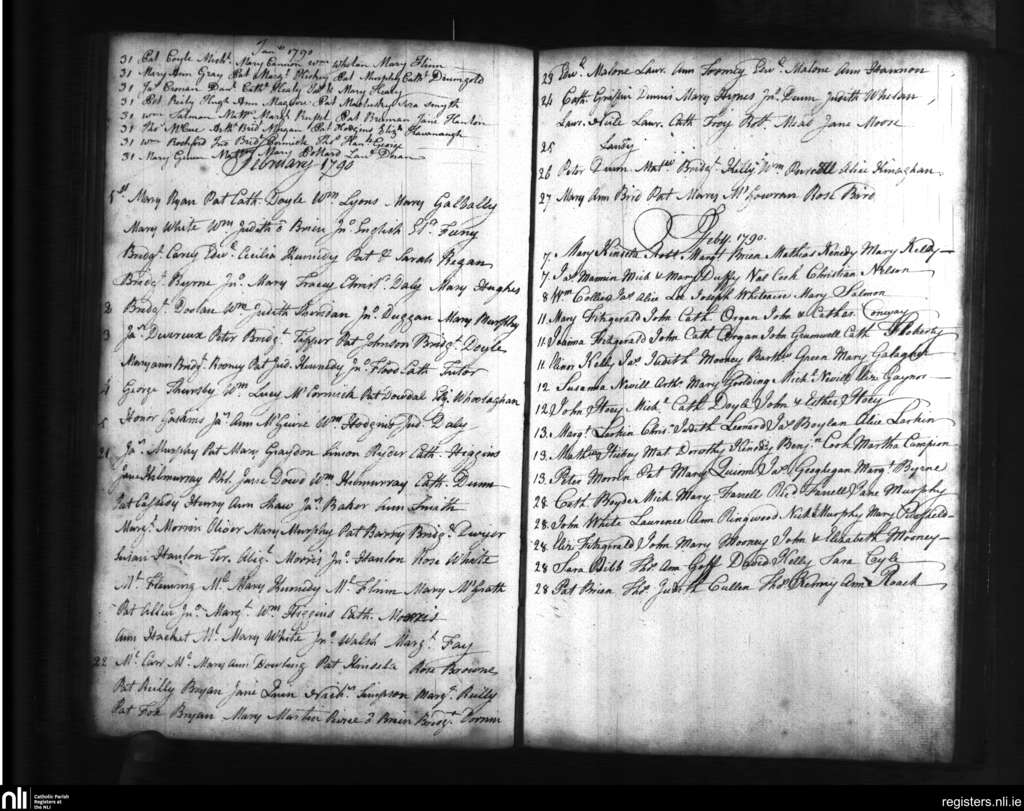 Jan.y 1790
31 Pat Coyle Mich.l Mary Cannon Wm Whelan Mary Flinn
31 Mary Ann Gray Pat Marg.t Hickey Pat Murphy Cath.e
31 Jas Cronan Dan.l Cath. Healy Jas & Mary Healy
31 Pat Reily Hugh Ann Maguire Pat Sara Smyth
31 Wm Salmon Matt.w Marg.t Russel Pat Brennan Jane Hanlon
31 Thos McCue Arth.r Brid Pat Hodgins Eliz.th Kavanaugh
31 Wm Rochford Brid Thos George
31 Mary Mary Pollard
February 1790
1st Mary Ryan Pat Cath. Doyle Wm Lyons Mary Galbally
Mary White Wm Judith o Brien Jno. English
Bridg.t Carey Edw.d Cecilia Kennedy Pat & Sarah Regan
Bridg.t Byrne Jno. Mary Tracey Christ.r Daly Mary Hughes
2 Bridg.t Doolan Wm Judith Jno. Duggan Mary Murphy
3 Jas Devreux Peter Bridg.t Pat Johnson Bridg.t Doyle
Maryann Bridg.t Rooney Pat Jud. Kennedy Jno. Flood Cath Tutor
4 George Thursby Wm Lucy McCormick Pat Dowdal
5 Honor Gaskins Ja.s Ann McGuire Wm Hodgins Jud. Daly
21 Jas. Murphy Pat Mary Graydon Simon Ryder Cath. Higgins
Jane Kilmurray Phil. Jane Dowd Wm Kilmurray Cath. Dunn
Pat Cassidy Henry Ann Shaw Ja.s Baker Ann Smith
Marg.t Morron Oliver Mary Murphy Pat Barny Bridg.t Dwyer
Susan Hanlon Ter. Alic.e Morris Jno. Hanlon Rose White
Ml. Fleming Ml. Mary Kennedy Ml. Flinn Mary McGrath
Pat Jno. Marg.t Wm Higgins Cath. Morris
Ann Hacket Ml. Mary White Jno. Walsh Marg.t Fay
22 Ml. Carr Ml. Mary Ann Dowling Pat Kinsela Rose Browne
Pat Reilly Bryan Jane Simpson Marg.t Reilly
Pat Fox Bryan Mary Martin Pierce o Brien Bridg.t
23 Edw.d Malone Law. Ann Toomey Edw.d Malone Ann Hannon
24 Cath. Dennis Mary Hynes Jno. Dunn Judith Whelan
Law. Law. Cath Troy Rob.t Jane Moore
25
26 Peter Dunn Bridg.t Kelly Wm Purcell Alice Kinaghan
27 Mary Ann Bird Pat Mary McGowran Rose Bird
Feby. 1790
7. Mary Kinsela Rob.t Marg.t Brien Mathias Kenedy Mary Kelly
7 Jas Mannin Mich & Mary Duffy Cook Christian Nelson
8 Wm Collins Jas Alice Lee Joseph Mary Salmon
11. Mary Fitzgerald John Cath. Organ John & Cathar. Conway
11 Joanna Fitzgerald John Cath Organ John Gramwell Cath
11 Elinor Kelly Jas Judith Mooney Barth.w Green Mary Galagher
12 Susanna Nevill Arth.r Mary Golding Mich.l Nevill Eliz. Gaynor
12 John Hoey Mich.l Cath Doyle John & Esther Hoey
13. Marg.t Larkin Chris.r Judith Leonard Jas Boylan Alice Larkin
13. Mathw Hickey Mat Dorothy Kenedy Benj.n Cork Martha Campion
13. Peter Morrin Pat Mary Quinn Jas Geoghegan Marg.t Byrne
28 Cath Mich Mary Farrell Rich.d Farrell Jane Murphy
28. John White Laurence Ann Ringwood Nich. Murphy Mary
28. Eliz Fitzgerald John Mary Mooney John & Elizabeth Mooney
28 Sara Bibb Thos Ann Goff David Kelly Sara Coyle
28 Pat Brien Thos Judith Cullen Thos Ann Roach
nli Catholic Parish Registers at the NLI
registers.nli.ie